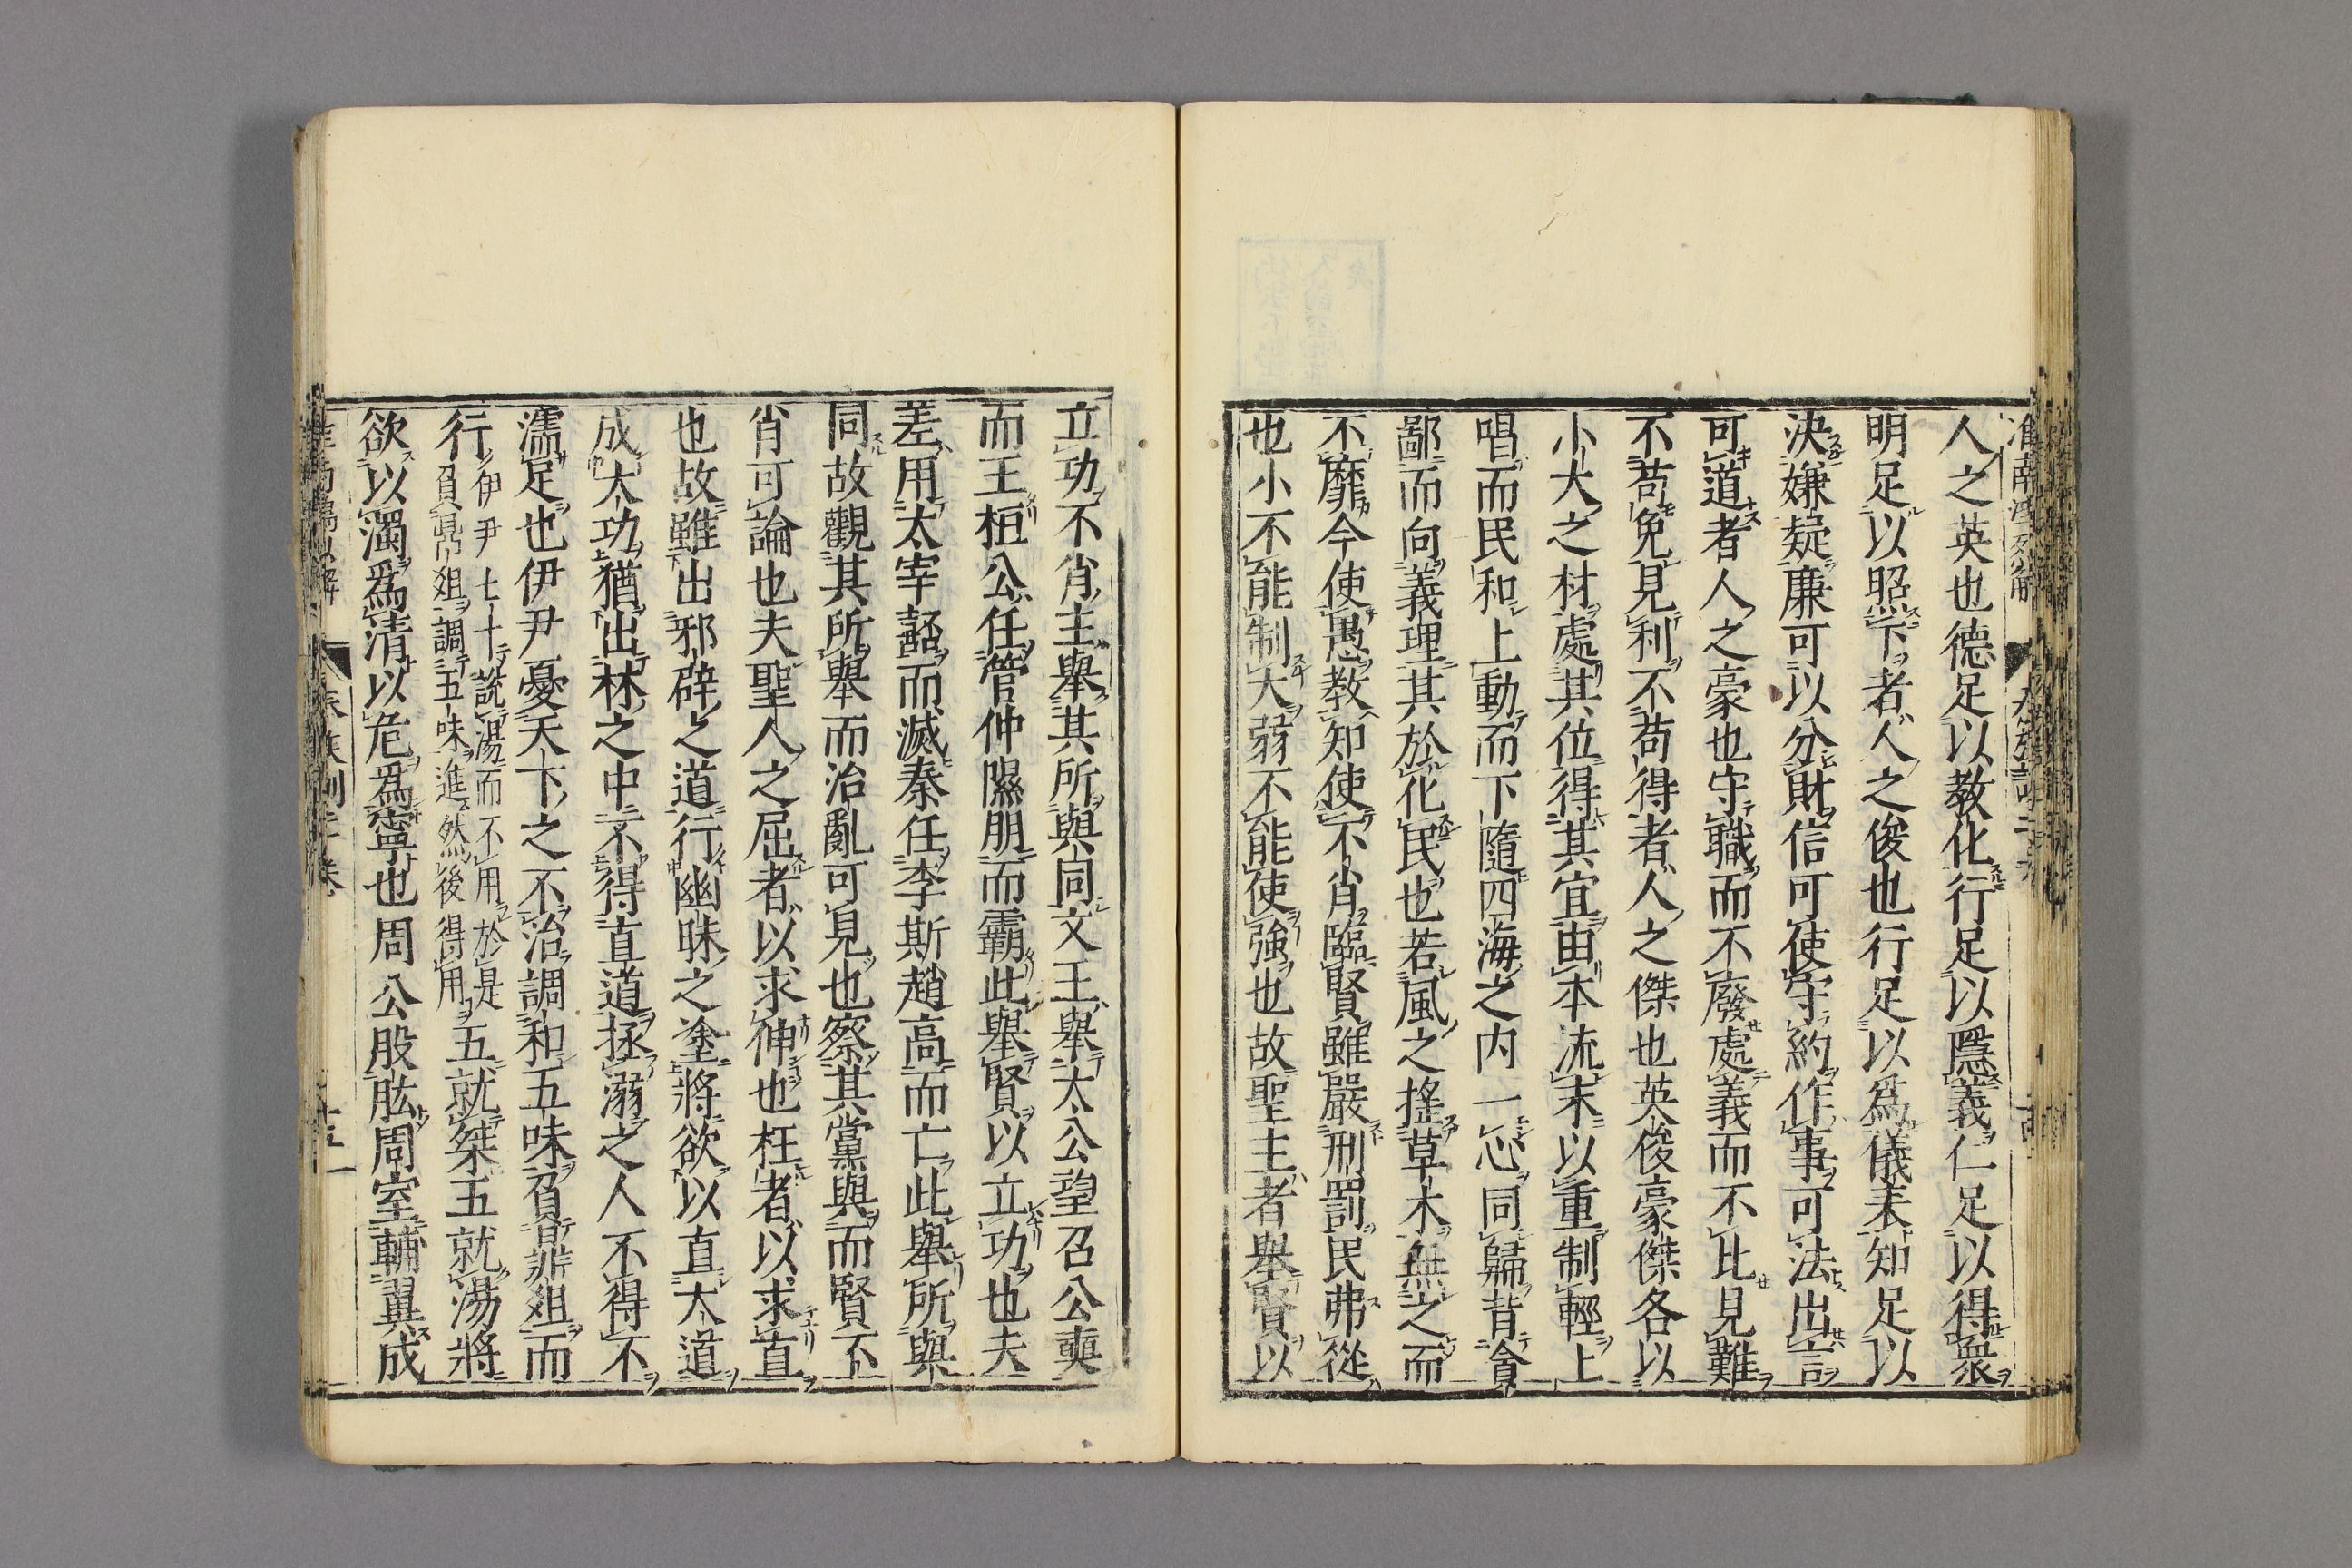 人之英也德足以教化行足以隱義仁足以得衆
明足以照下者人之俊也行足以爲儀表知足以
決嫌疑廉可以分財信可使守約作事可法出言
可道者人之豪也守職而不廢處義而不比見難
不苟免見利不苟得者人之傑也英俊豪傑各以
小大之材處其位得其宜由本流末以重制輕上
唱而民和上動而下隨四海之内一心同歸背貪
鄙而向義理其於化民也若風之搖草木無之而
不靡今使愚教知使不肖臨賢雖嚴刑罰民弗從
也小不能制大弱不能使強也故聖主者舉賢以
立功不肖主舉其所與同文王舉太公望召公奭
而王桓公任管仲隰朋而霸此舉賢以立功也夫
差用太宰嚭而滅秦任李斯趙高而亡此舉所與
同故觀其所舉而治亂可見也察其黨與而賢不
肖可論也夫聖人之屈者以求伸也枉者以求直
也故雖出邪辟之道行幽昧之塗將欲以直大道
成大功猶出林之中不得直道拯溺之人不得不
濡足也伊尹憂天下之不治調和五味負鼎俎而
行伊尹七十說湯而不用於是
負鼎俎調五味進然後得用五就桀五就湯將
欲以濁爲清以危爲寧也周公股肱周室輔翼成